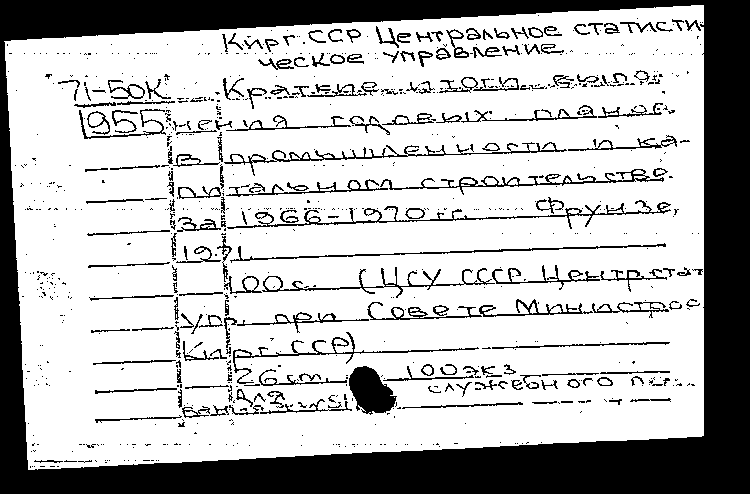 Кирг. ССР Центральное статисти-
ческое управление.
"71-50К" Краткие итоги выпол-
1955 нения годовых планов
в промышленности и ка-
питальном строительстве.
за 1966-1970 гг. Фрунзе,
1971.
100 с. (ЦСУ СССР. Центр. стат.
упр. при Совете Министров
Кирг. ССР)
26 cm. 100 экз
Для служебного